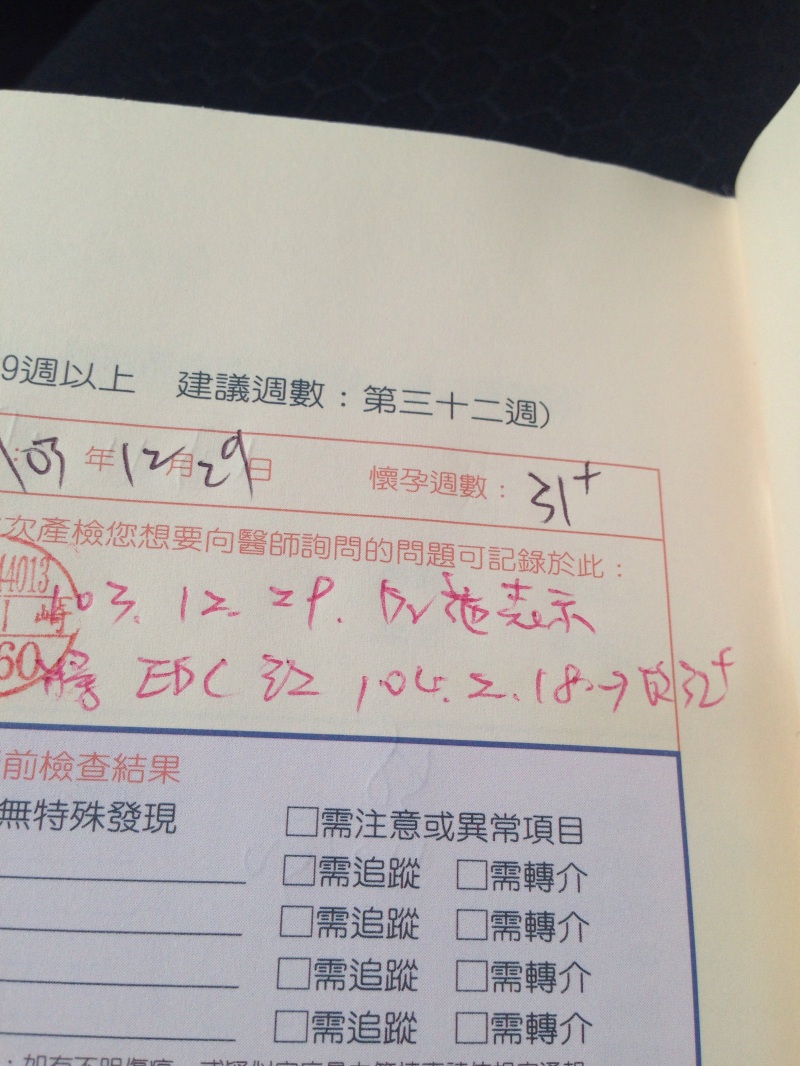 9週以上 建議週數：第三十二週)
103年12月29日 懷孕週數：31+
次產檢您想要向醫師詢問的問題可記錄於此：
44013
103.12.29. Dr 施表示
崎
60
EDC 104.2.18→ 32+
前檢查結果
無特殊發現 □需注意或異常項目
□需追蹤 □需轉介
□需追蹤 □需轉介
□需追蹤 □需轉介
□需追蹤 □需轉介